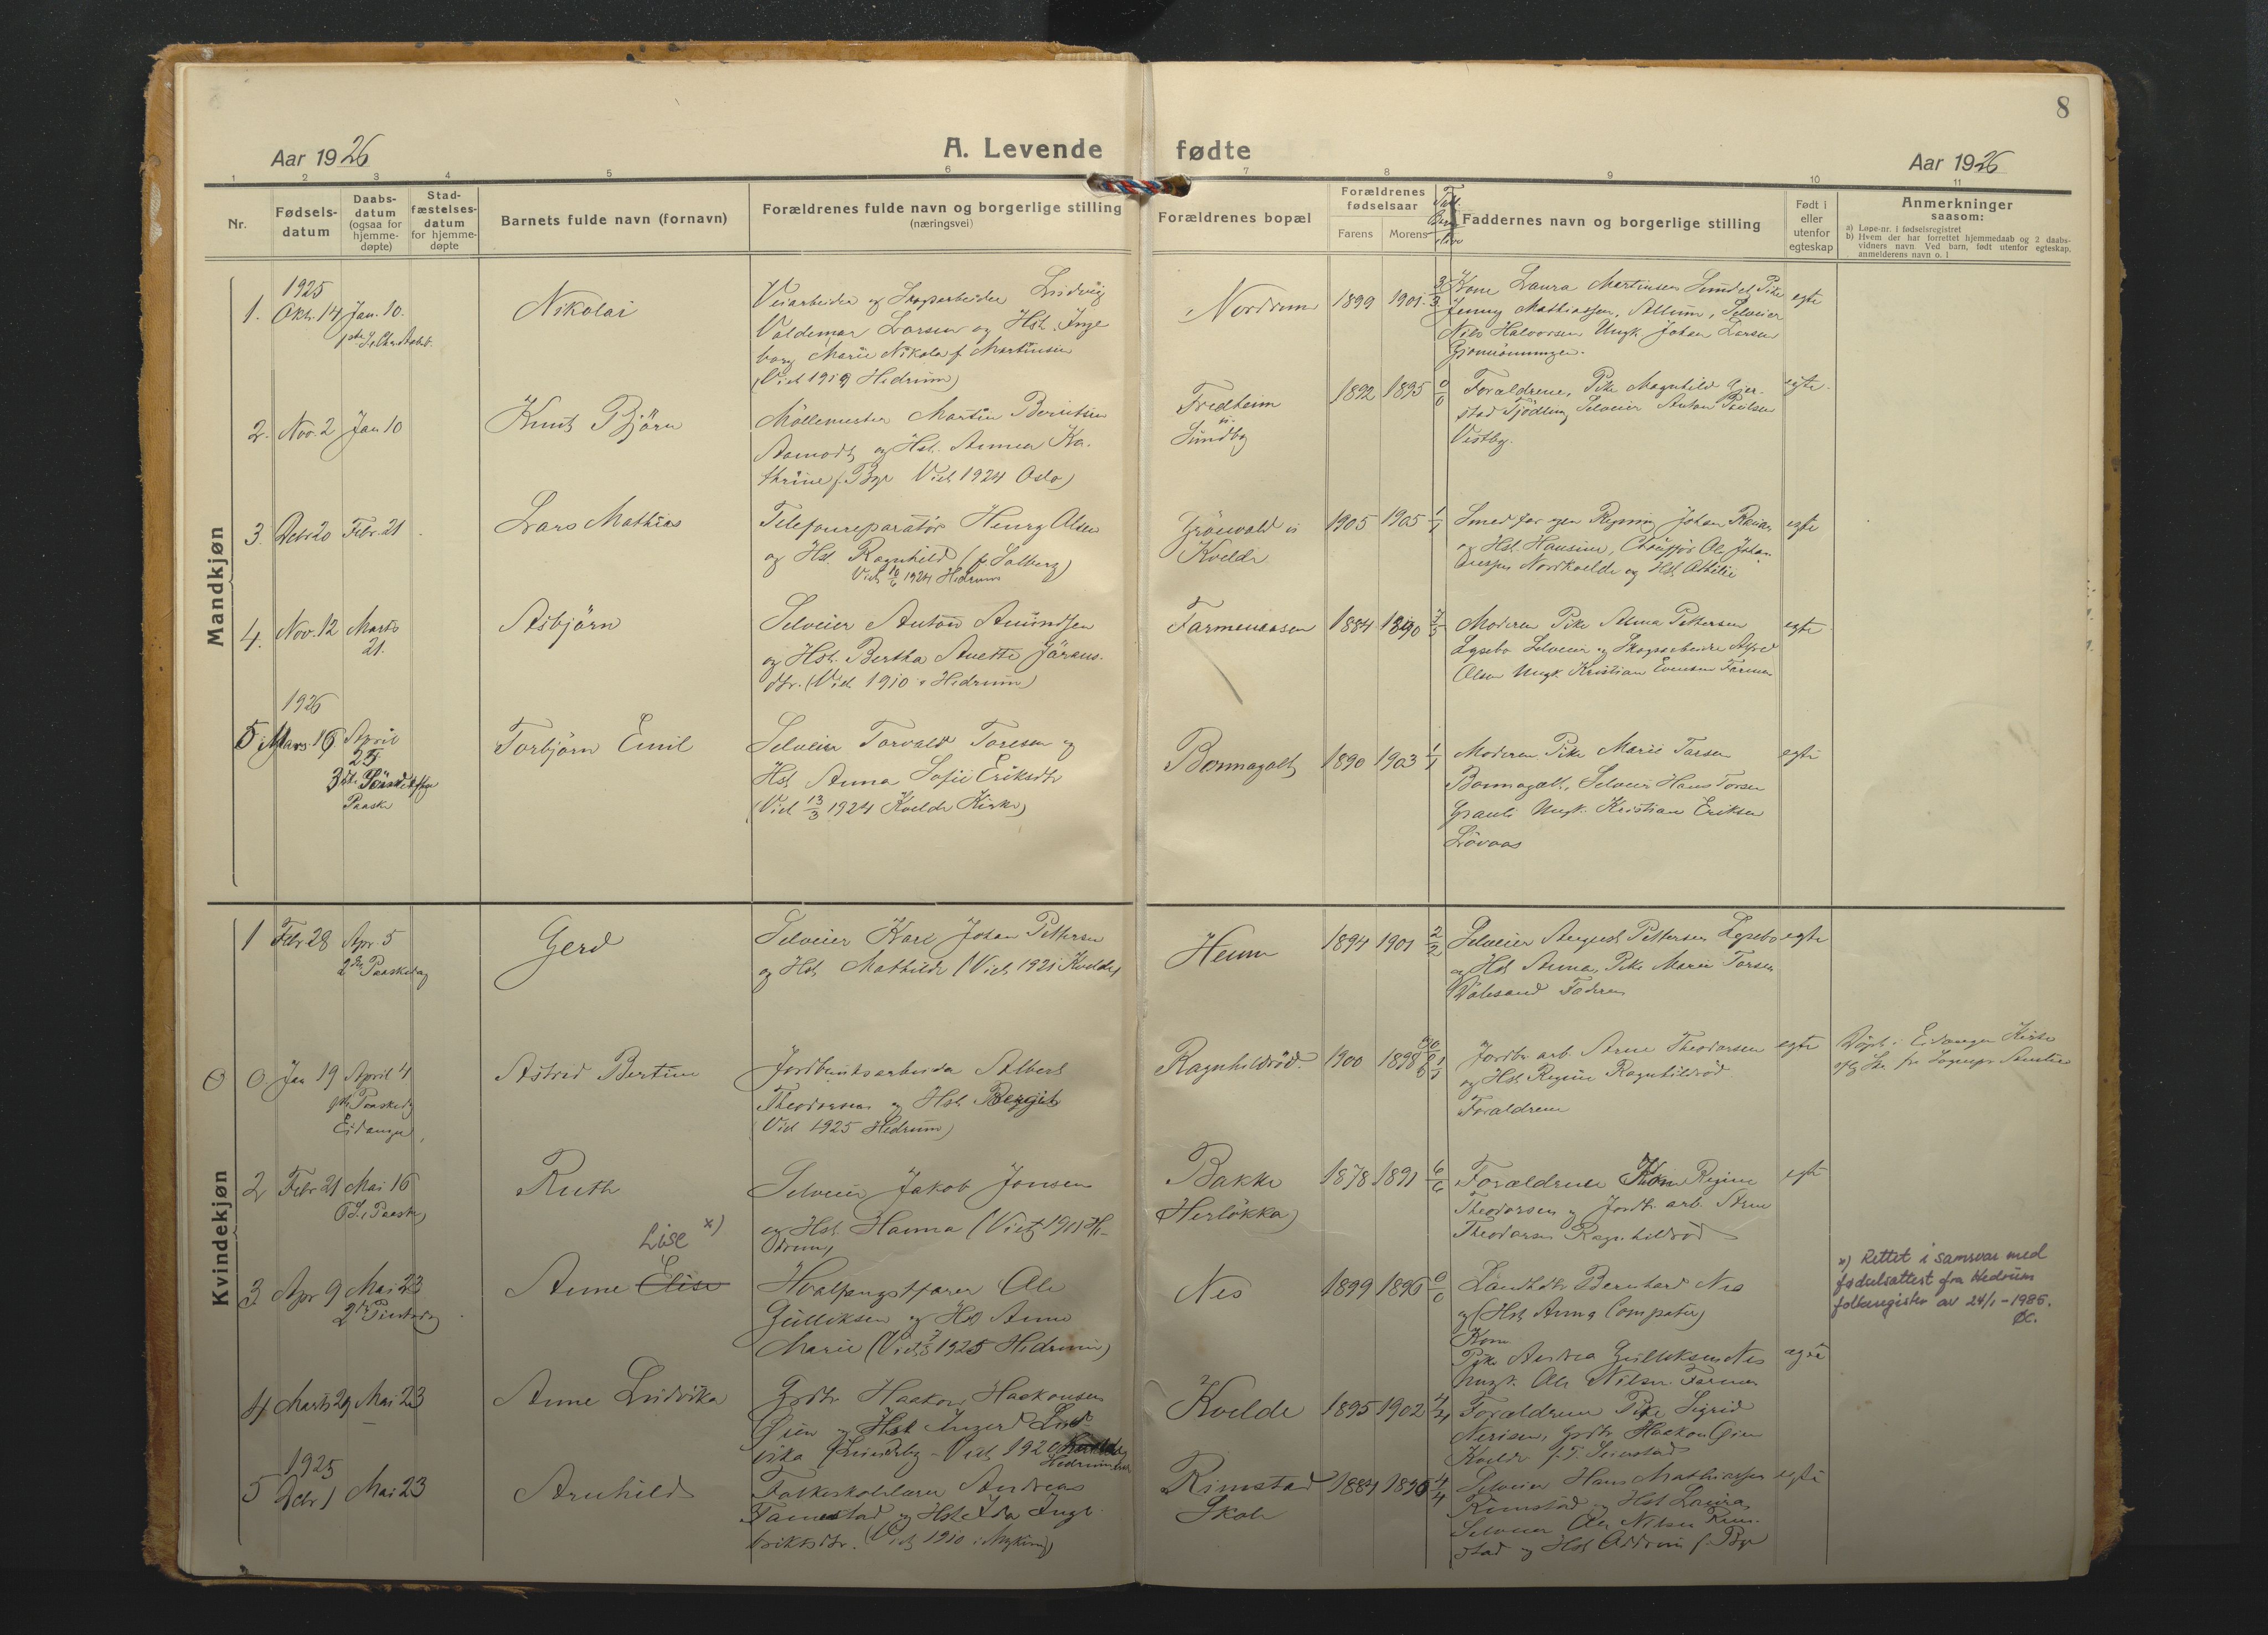 8
Aar 1926
A. Levende fødte
Aar 1926
1 2 3 4 5 6 7 8 9 10 11
Nr.
Fødsels-
datum
Daabs-
datum
(ogsaa for
hjemme-
døpte)
Stad-
fæstelses-
datum
for hjemme-
døpte
Barnets fulde navn (fornavn)
Forældrenes fulde navn og borgerlige stilling
(næringsvei)
Forældrenes bopæl
Forældrenes
fødselsaar
Farens
Morens
Faddernes navn og borgerlige stilling
Født i
eller
utenfor
egteskap
Anmerkninger
saasom:
a) Løpe-nr. i fødselsregistret
b) Hvem der har forrettet hjemmedaab og 2 daabs-
vidners navn. Ved barn, født utenfor egteskap,
anmelderens navn o. l
Mandkjøn
1925
1. Okt. 14 Jan. 10.
Nikolai
Veiarbeider og Skogsarbeider Ludvig
Valdemar Larsen og Hst. Inge
borg Marie Nikola f. Martinsen
(Viet 1919 Hedrum)
Nordrum
1899 1901 3/3
Kone Laura Martinsen Pike
Jenny Mathiassen, Selveier
Nils Halvorsen Ungk. Johan Larsen
egte
2. Nov. 2 Jan 10
Knut Bjørn
Møllemester Martin Berntsen
Aamodt og Hst. Anna Ka-
thrine f. Bye Viet 1924 Oslo)
Fredheim
Sundby
1892 1895 0/0
Forældrene, Pike Magnhild
Selveier Anton Paulsen
Vestby.
egte
3. Debr 20 Febr. 21
Lars Mathias
Telefonreparatør Henry Olsen
og Hst. Ragnhild (f. Solberg)
Viet 10/6 1924 Hedrum
Grønvold i
Kvelde
1905 1905 1/1
Smed Johan
og Hst. Hansine, Chauffør Ole Johan
Nordkvelde og Hst. Othilie
egte
4. Nov. 12 Marts
21.
Asbjørn
Selveier Anton Amundsen
og Hst. Bertha Anette Jørans-
dtr. (Viet 1910 i Hedrum)
Farmenaasen
1884 1890 7/5
Moderen Pike Anna Pettersen
Lysebo Selveier og Skogsarbeider Alfred
Olsen Ungk. Kristian Evensen Farmen
egte
1926
5 Mars 16 April
25
3die Sönd. efter
Paaske
Torbjørn Emil
Selveier Torvald Toresen og
Hst Anna Sofie Eriksdtr
(Viet 13/3 1924 Kvelde Kirke)
Bonnagolt
1890 1903 1/1
Moderen Pike Marie Torsen
Bonnagolt, Selveier Hans Torsen
Ungk. Kristian Eriksen
Løvaas
egte
Kvindekjøn
1 Febr 28 Apr. 5
2den Paaskedag
Gerd
Selveier Karl Johan Pettersen
og Hst Mathilde (Viet 1921 Kvelde)
Heum
1894 1901 2/2
Selveier August Pettersen Lysebo
og Hst Anna, Pike Marie Torsen
Faderen
egte
0 Jan 19 April 4
1ste Paaskedg
Eidanger
Astrid Bertine
Jordbruksarbeider Albert
Theodorsen og Hst Bergit
(Viet 1925 Hedrum)
Ragnhildrød
1900 1898 1/1
Jordbr. arb. Arne Theodorsen
og Hst Regine Ragnhildrød
Forældrene
egte
Døpt i Eidanger Kirke
2 Febr 21 Mai 16
6 S. e Paaske
Ruth
Selveier Jakob Jonsen
og Hst. Hanna (Viet 1911 He-
drum)
Bakke
(Herløkka)
1878 1891 6/6
Forældrene Kone Regine
Theodorsen og Jordbr. arb. Arne
Theodorsen Ragnhildrød
egte
3. Apr 9 Mai 23
2 Pintsedag
Lise x)
Anne Elise
Hvalfangstfører Ole
Gulliksen og Hst Anne
Marie (Viet 1925 Hedrum)
Nes
1899 1896 0/0
Landhdlr Bernhard Nes
og (Hst Anna Compater)
Kone
Pike Andrea Gulliksen Nes
Ungk. Ole Nilsen Farmen
egte
x) Rettet i samsvar med
fødselsattest fra Hedrum
folkeregister av 24/1-1985.
ØC.
4 Marts 29 Mai 23
Anne Ludvika
Grdbr Haakon Haakonsen
Øien og Hst Inger Lud-
vika f. Lindsby - Viet 192
Hedrum
Kvelde
1895 1902 4/4
Forældrene Pike Sigrid
Nerisen, Grdbr Haakon Øien
Kvelde
1925
5 Debr 1 Mai 23
Arnhild
Folkeskolelærer Andreas
Tannestad og Hst Ida Inge-
briktsdtr. (Viet 1910 i
Rimstad
Skole
1884 1890 4/4
Selveier Hans Mathiassen
Rimstad og Hst Laura,
Selveier Ole Nilsen Rim-
stad og Hst f. Bye
egte